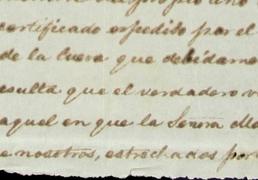 certificado espedido por el
de la Cueva que debidame
esulta que el verdadero v
aquel en que la Señora Ma
e nosotros, estrechados por